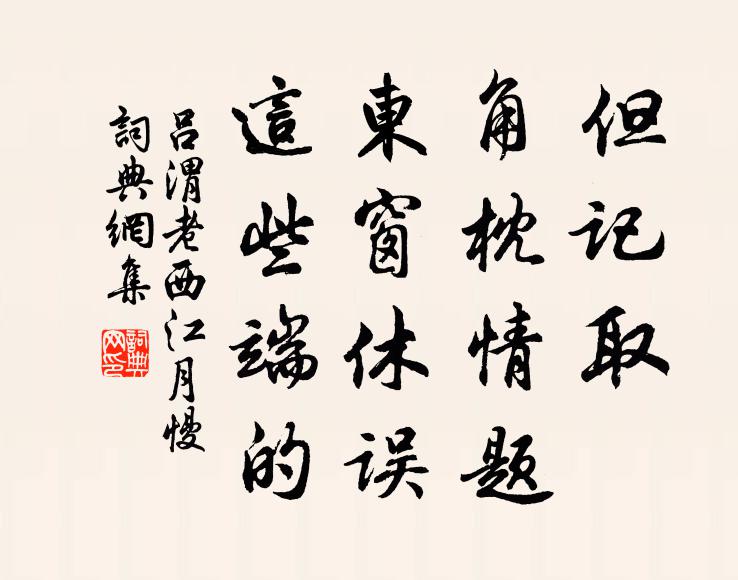 但記取
角枕情题
東窗休误
這些端的
吕渭老西江月慢
詞典網集
詞典網印